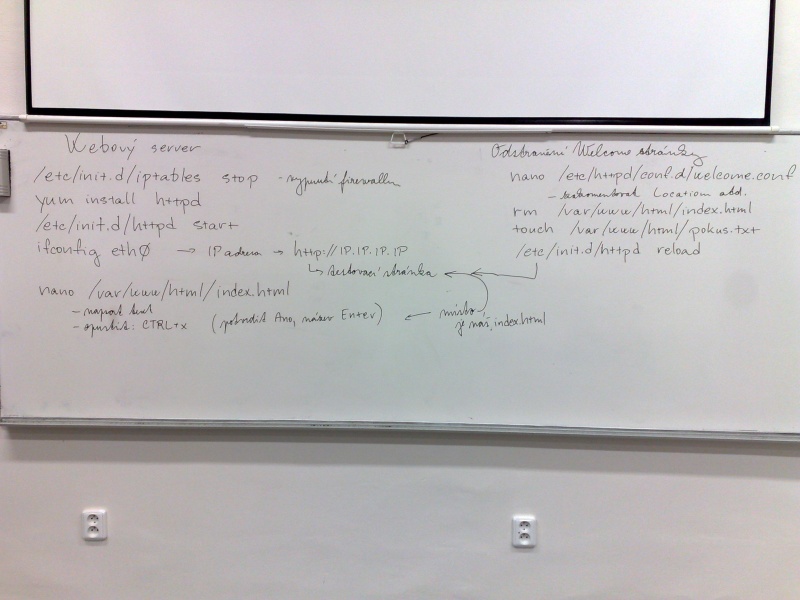 Webový server
/etc/init.d/iptables stop - vypnutí firewallu
yum install httpd
/etc/init.d/httpd start
ifconfig eth0 → IP adresa → http://IP.IP.IP.IP
↳ testovací stránka
nano /var/www/html/index.html
- napsat text
- opustit: CTRL+x (potvrdit Ano, název Enter)
← místo
je náš index.html
Odstranění Welcome stránky
nano /etc/httpd/conf.d/welcome.conf
- zakomentovat Location atd.
rm /var/www/html/index.html
touch /var/www/html/pokus.txt
/etc/init.d/httpd reload